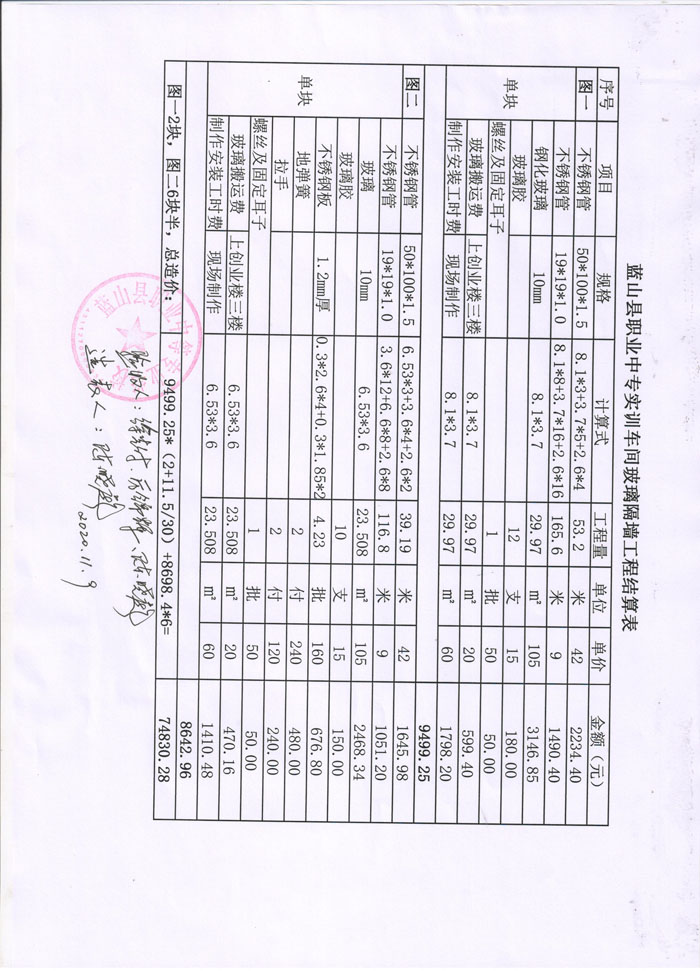 蓝山县职业中专实训车间玻璃隔墙工程结算表
序号 项目 规格 计算式 工程量 单位 单价 金额（元）
图一 不锈钢管 50*100*1.5 8.1*3+3.7*5+2.6*4 53.2 米 42 2234.40
单块 不锈钢管 19*19*1.0 8.1*8+3.7*16+2.6*16 165.6 米 9 1490.40
钢化玻璃 10mm 8.1*3.7 29.97 m² 105 3146.85
玻璃胶 12 支 15 180.00
螺丝及固定耳子 1 批 50 50.00
玻璃搬运费 上创业楼三楼 8.1*3.7 29.97 m² 20 599.40
制作安装工时费 现场制作 8.1*3.7 29.97 m² 60 1798.20
9499.25
图二 不锈钢管 50*100*1.5 6.53*3+3.6*4+2.6*2 39.19 米 42 1645.98
单块 不锈钢管 19*19*1.0 3.6*12+6.6*8+2.6*8 116.8 米 9 1051.20
玻璃 10mm 6.53*3.6 23.508 m² 105 2468.34
玻璃胶 10 支 15 150.00
不锈钢板 1.2mm厚 0.3*2.6*4+0.3*1.85*2 4.23 批 160 676.80
地弹簧 2 付 240 480.00
拉手 2 付 120 240.00
螺丝及固定耳子 1 批 50 50.00
玻璃搬运费 上创业楼三楼 6.53*3.6 23.508 m² 20 470.16
制作安装工时费 现场制作 6.53*3.6 23.508 m² 60 1410.48
8642.96
图一2块，图二6块半，总造价： 9499.25*（2+11.5/30）+8698.4*6= 74830.28
验收人：
造表人：陈
2020.11.9